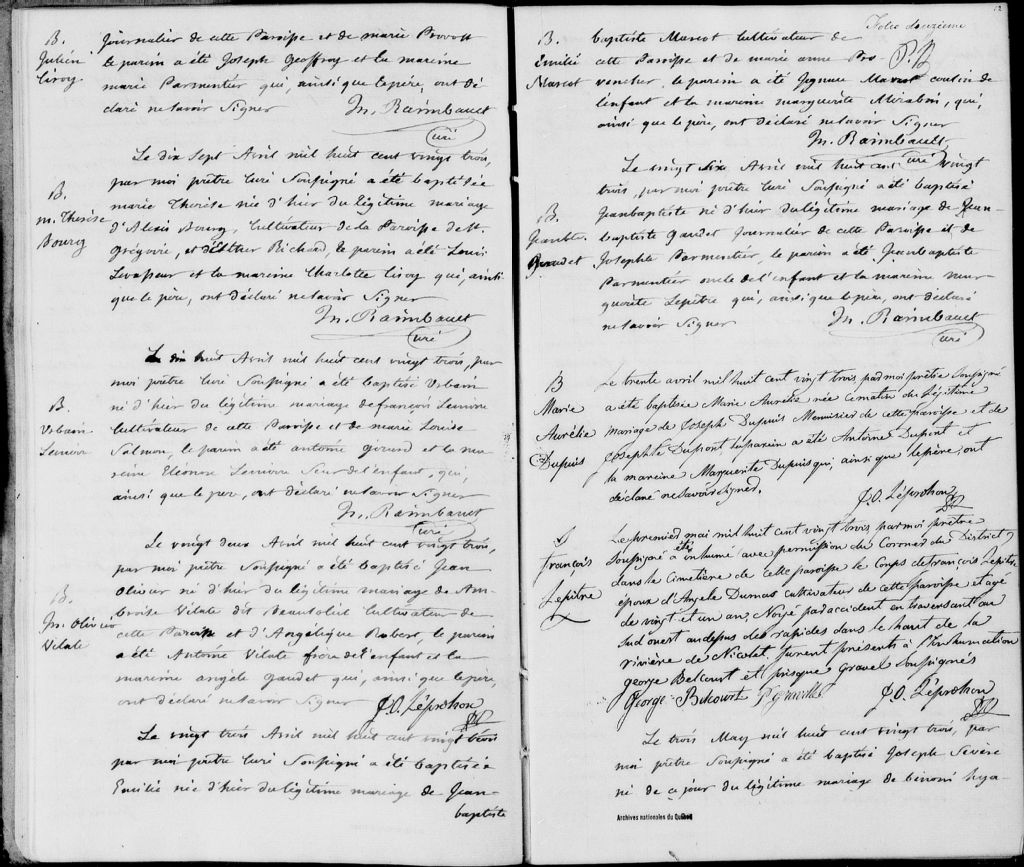 B.
Julien
Leroy.
journalier de cette Paroisse et de marie Provost
le parein a été Joseph Geoffroy et la mareine
marie Parmentier qui, ainsi que le père, ont dé
claré ne savoir signer
Jn. Raimbault
Curé
B.
m. Therèse
Bourg
Le dix sept Avril mil huit cent vingt trois,
par moi prêtre Curé Soussigné a été baptisée
marie Therèse née d'hier du légitime mariage
d'Alexis Bourg, Cultivateur de la Paroisse de St.
Grégoire, et d'Esther Richard, le parein a été Louis
Levasseur et la mareine Charlotte Leroy qui, ainsi
que le père, ont déclaré ne savoir signer
Jn. Raimbault
Curé
B.
Urbain
Lemire
Le dix huit Avril mil huit cent vingt trois, par
moi prêtre Curé Soussigné a été baptisé Urbain
né d'hier du légitime mariage de françois Lemire
Cultivateur de cette Paroisse et de marie Louise
Salmon, le parein a été antoine girard et la ma
reine Eleonore Lemire Sœur de l'enfant, qui,
ainsi que le pere, ont déclaré ne savoir signer
Jn. Raimbault
Curé
B.
Jn. Olivier
Vilate
Le vingt deux Avril mil huit cent vingt trois,
par moi prêtre Soussigné a été baptisé Jean
Olivier né d'hier du légitime mariage de Am-
broise Vilate dit Beausoleil Cultivateur de
cette Paroisse et d'Angélique Robert, le parein
a été Antoine Vilate frère de l'enfant et la
mareine angèle gaudet qui, ainsi que le père,
ont déclaré ne savoir signer
J.O. Léprohon
Ptre
Le vingt trois Avril mil huit cent vingt trois
par moi prêtre Curé Soussigné a été baptisée
Emilie née d'hier du légitime mariage de Jean-
baptiste
12
Folio douzieme
P.B
B.
Emilie
Marcot
baptiste Marcot Cultivateur de
cette Paroisse et de marie anne Pro
vencher, le parein a été Ignace Marcot cousin de
l'enfant et la mareine marguerite Mirabin, qui,
ainsi que le père, ont déclaré ne savoir signer
Jn. Raimbault
Curé
B.
Jeanbte.
Gaudet
Le vingt Six Avril mil huit cent vingt
trois, par moi prêtre Curé Soussigné a été baptisé
Jeanbaptiste né d'hier du légitime mariage de Jean-
baptiste Gaudet journalier de cette Paroisse et de
Josephte Parmentier, le parein a été Jeanbaptiste
Parmentier oncle de l'enfant et la mareine mar
guerite Lepitre qui, ainsi que le père, ont déclaré
ne savoir signer
Jn. Raimbault
Curé
B
Marie
Aurélie
Dupuis
Le trente avril mil huit cent vingt trois par moi prêtre Soussigné
a été baptisée Marie Aurélie née ce matin du Légitime
mariage de Joseph Dupuis Menuisier de cette paroisse et de
Josephte Dupont le parain a été Antoine Dupont et
la mareine Marguerite Dupuis qui, ainsi que le père, ont
déclaré ne savoir signer.
J.O. Léprohon
Ptre
S
François
Lepitre
Le premier mai mil huit cent vingt trois par moi prêtre
soussigné a été inhumé avec permission du Coroner du District,
dans le Cimetière de cette paroisse le Corps de françois Lepitre
époux d'Angele Dumas cultivateur de cette paroisse et agé
de vingt et un an, Noyé par accident en traversant au
sud ouest au dessus des rapides dans le haut de la
rivière de Nicolet, furent présents à l'inhumation
george Belcourt et prisque Gravel Soussignés
George Belcourt P. gravelle
J.O. Léprohon
Ptre
Le trois May mil huit cent vingt trois, par
moi prêtre Soussigné a été baptisé Joseph Sévère
né de ce jour du légitime mariage de benoni hya-
Archives nationales du Québec